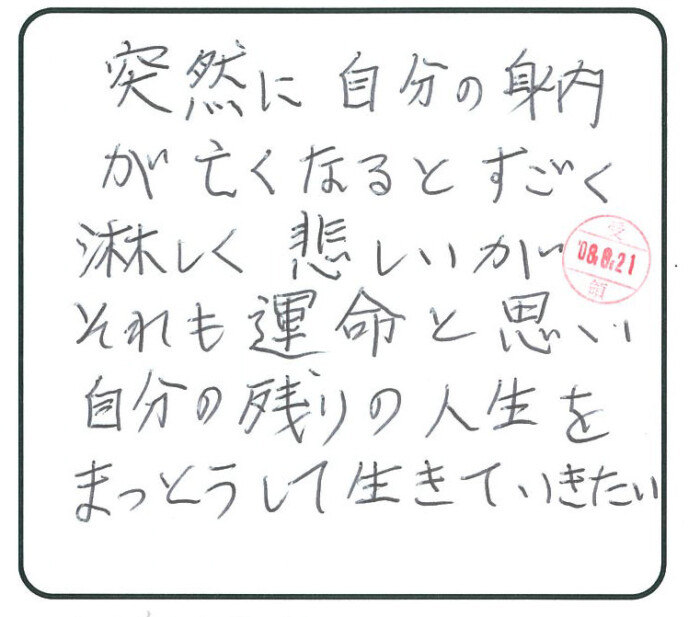 突然に自分の身内
が亡くなるとすごく
淋しく悲しいが
受
'08.8.21
領
それも運命と思い
自分の残りの人生を
まっとうして生きていきたい